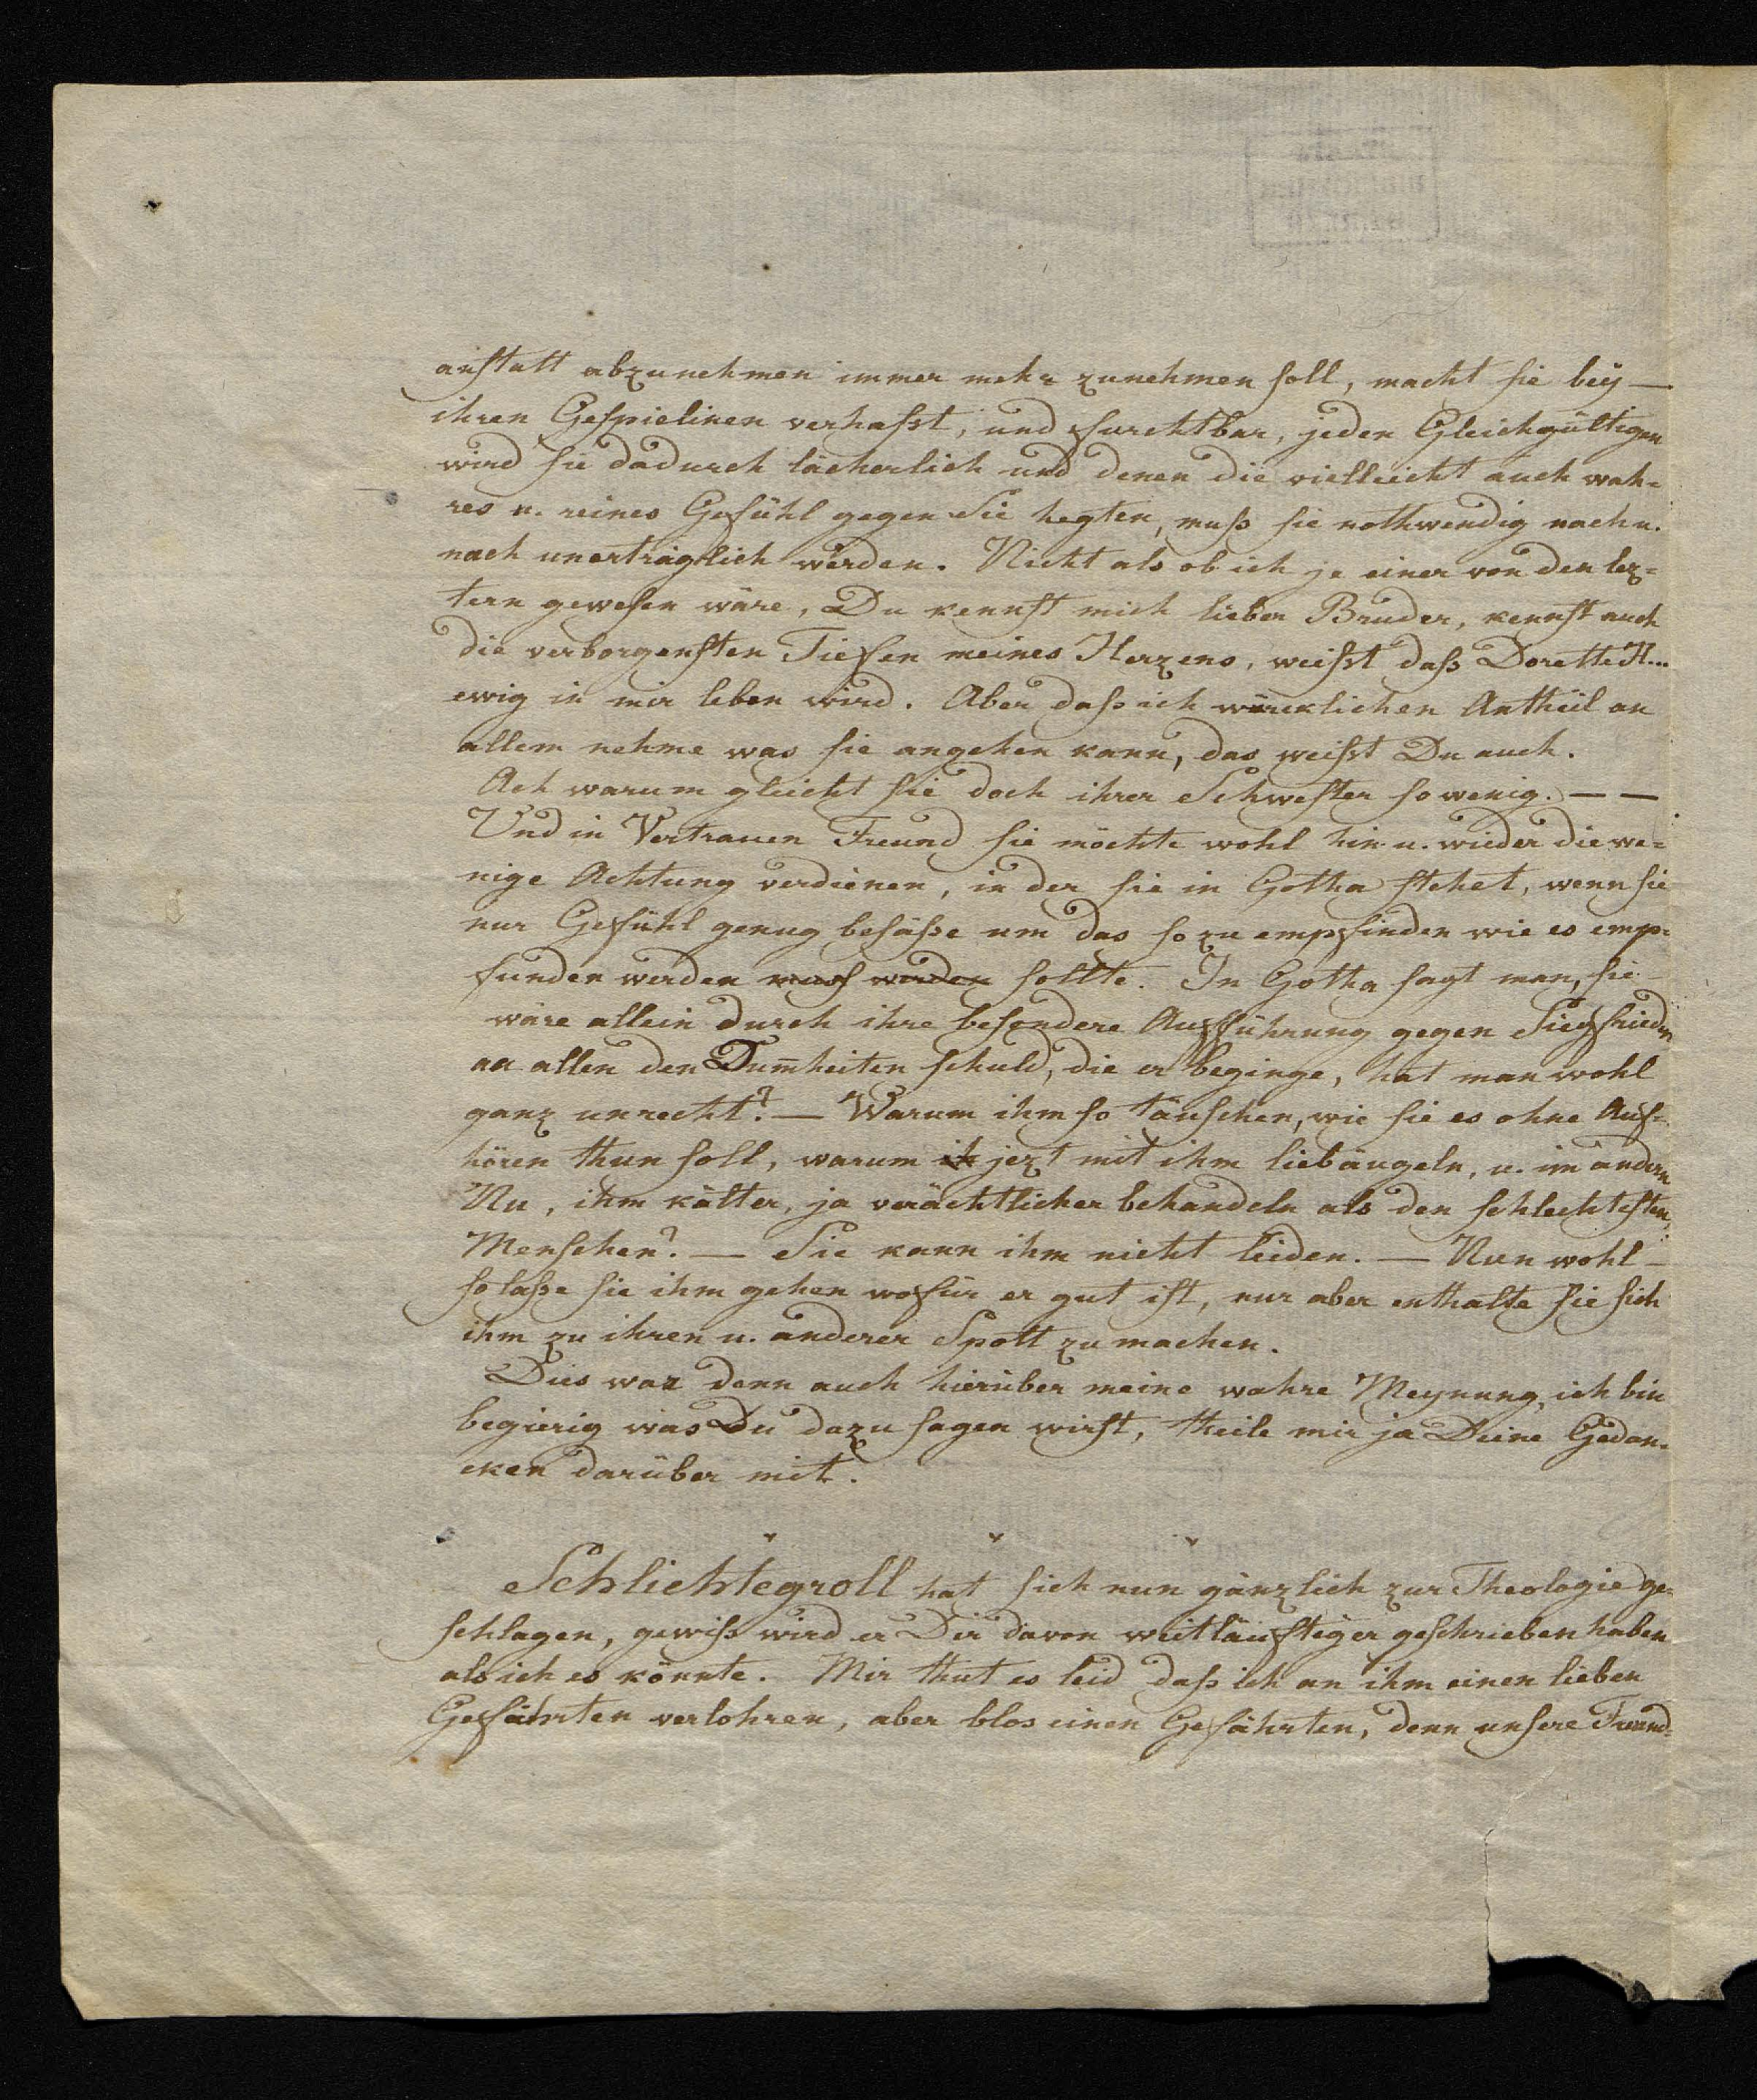 anstatt abzunehmen immer mehr zunehmen soll, macht sie bey —
ihren Gespielinen verhaßt, und furchtbar, jeden Gleichgültigen
wird sie dadurch lächerlich und denen die vielleicht auch wah-
res u. reines Gefühl gegen Sie hegten, muß sie nothwendig nach u.
nach unerträglich werden. Nicht als ob ich je einer von den lez-
tern gewesen wäre, Du kennst mich lieber Bruder, kennst auch
die verborgensten Tiefen meines Herzens, weißt daß Dorette H...
ewig in mir leben wird. Aber daß ich würcklichen Antheil an
allem nehme was sie angehen kann, das weißt Du auch.
Ach warum gleicht sie doch ihrer Schwester so wenig. — —
Und in Vertrauen Freund sie möchte wohl hin u. wieder die we-
nige Achtung verdienen, in der sie in Gotha stehet, wenn sie
nur Gefühl genug besäße um das so zu empfinden wie es emp-
funden werden muß werden sollte. In Gotha sagt man, sie
wäre allein durch ihre besondere Aufführung gegen Siegfrieden
an allen den Dum̄heiten schuld, die er beginge, hat man wohl
ganz unrecht? — Warum ihm so täuschen, wie sie es ohne Auf-
hören thun soll, warum ih jezt mit ihm liebäugeln, u. im andern
Nu, ihm kälter, ja verächtlicher behandeln als den schlechtesten
Menschen? — Sie kann ihm nicht leiden. — Nun wohl —
so laße sie ihm gehen wofür er gut ist, nur aber enthalte sie sich
ihm zu ihren u. anderer Spott zu machen.
Dies war denn auch hierüber meine wahre Meynung, ich bin
begierig was Du dazu sagen wirst, theile mir ja Deine Gedan-
cken darüber mit.
Schlichtegroll hat sich nun gänzlich zur Theologie ge-
schlagen, gewiß wird er Dir davon weitläuftiger geschrieben haben
als ich es könnte. Mir thut es leid daß ich an ihm einen lieben
Gefährten verlohren, aber blos einen Gefährten, denn unsere Freund-